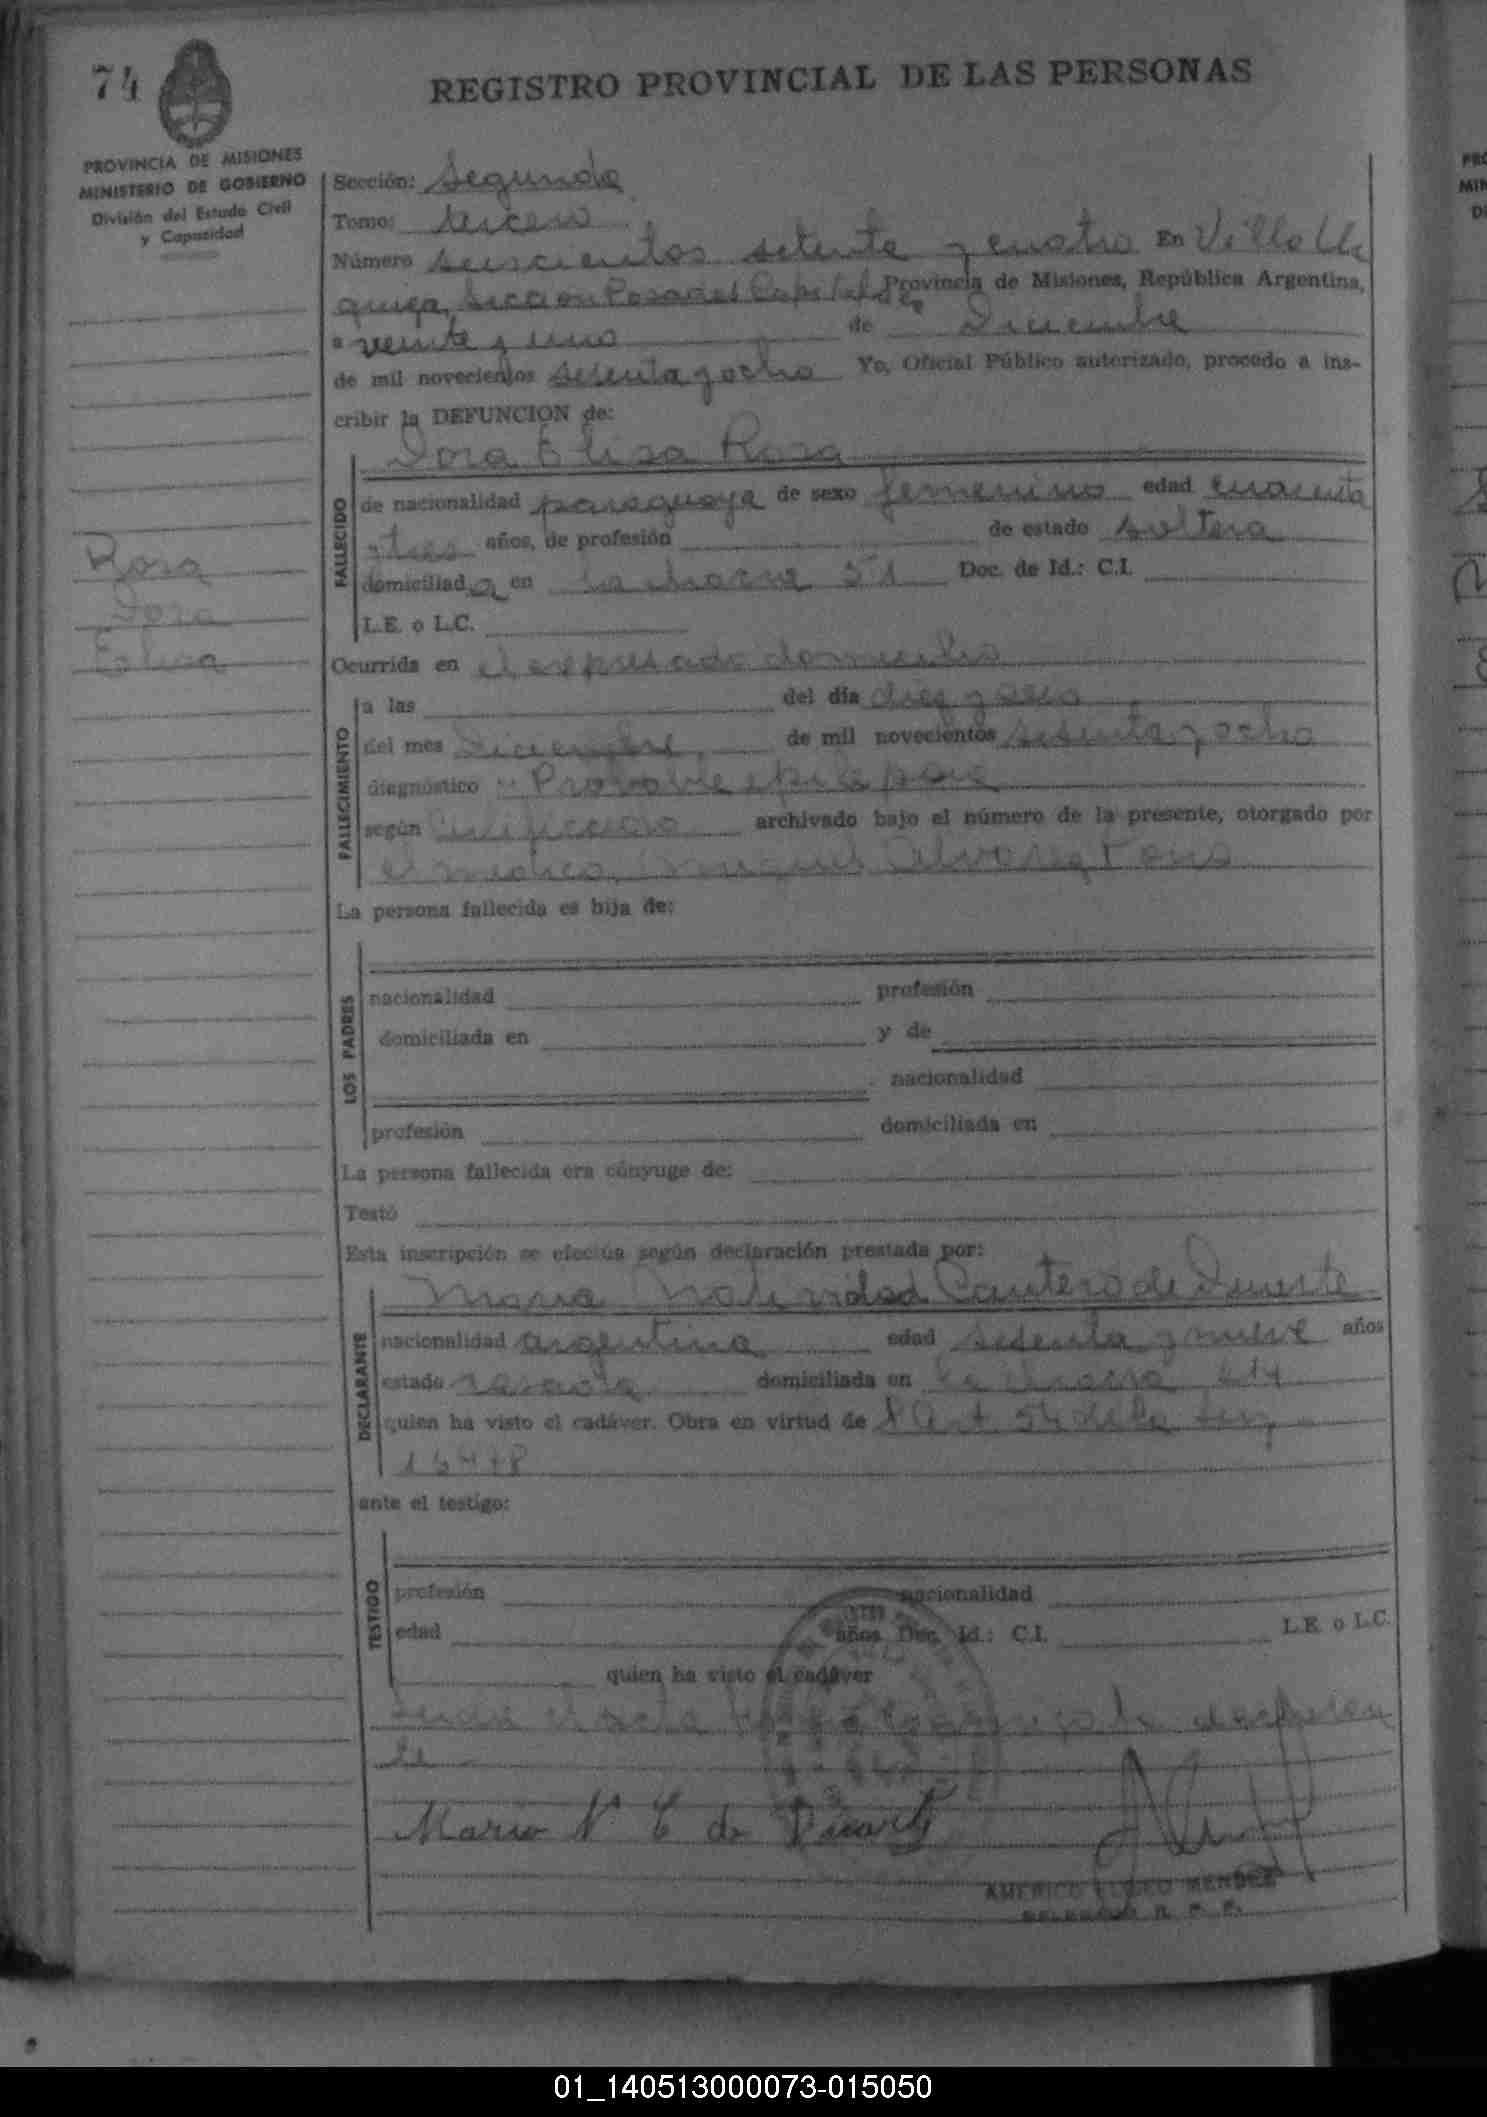 74
REGISTRO PROVINCIAL DE LAS PERSONAS
PROVINCIA DE MISIONES
MINISTERIO DE GOBIERNO
División del Estado Civil
y Capacidad
Sección: Segunda
Tomo: tercero
Número seiscientos setenta y cuatro En Villa U
quiza, Sección Posadas Capital de Provincia de Misiones, República Argentina,
a veinte y uno de Diciembre
de mil novecientos sesenta y ocho Yo, Oficial Público autorizado, procedo a ins-
cribir la DEFUNCION de:
Dora Elisa Rosa
FALLECIDO
de nacionalidad paraguaya de sexo femenino edad cuarenta
y tres años, de profesión de estado soltera
domiciliada en la chacra 51 Doc. de Id.: C.I.
L.E. o L.C.
Rosa
Dora
Elisa
Ocurrida en el expresado domicilio
FALLECIMIENTO
a las del día diez y seis
del mes Diciembre de mil novecientos sesenta y ocho
diagnóstico "Probable epilepsia
según certificado archivado bajo el número de la presente, otorgado por
el médico, Miguel Alvarez
La persona fallecida es hija de:
LOS PADRES
nacionalidad profesión
domiciliada en y de
nacionalidad
profesión domiciliada en
La persona fallecida era cónyuge de:
Testó
Esta inscripción se efectúa según declaración prestada por:
DECLARANTE
Maria Natividad Cantero de Duarte
nacionalidad argentina edad sesenta y nueve años
estado casada domiciliada en la chacra
quien ha visto el cadáver. Obra en virtud de l Art. 54 de la ley
ante el testigo:
TESTIGO
profesión nacionalidad
edad años Doc. Id.: C.I. L.E. o L.C.
quien ha visto el cadáver
Leída el acta la
te
Maria N C de Duarte
AMERICO ELISEO MENDEZ
DELEGADO R. P. P.
01_140513000073-015050